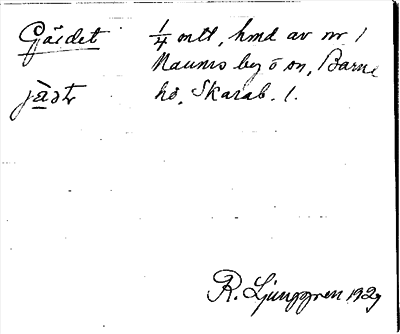 Gärdet ¼ mtl, hmd av nr 1
Naums by o on, Barne
jädtr hd, Skarab. l.
R. Ljunggren 1929